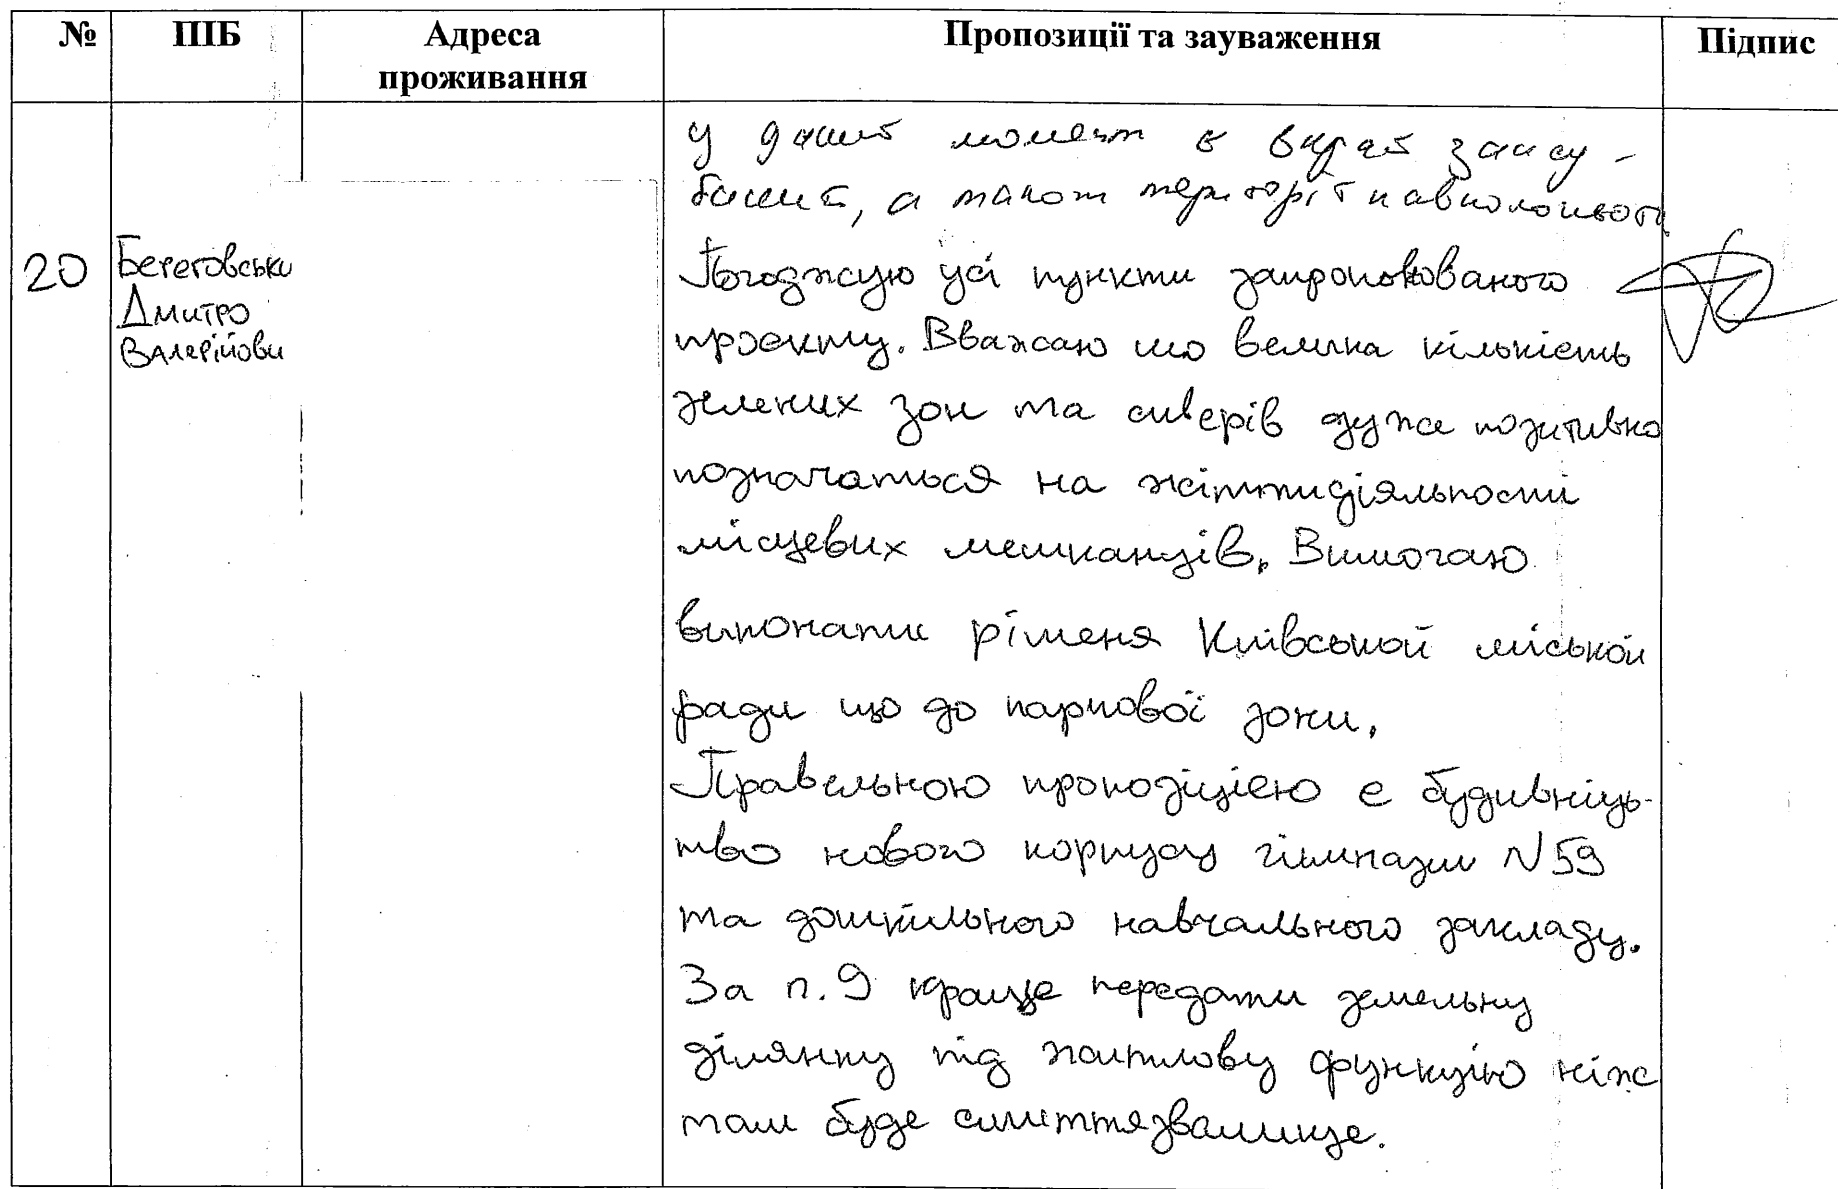 № ПІБ Адреса проживання Пропозиції та зауваження Підпис
у даний момент в вкрай занед-
баний, а також території навколишньої
20 Береговськи
Дмитро
Валерійови
Погоджую усі пункти запропонованого
проєкту. Вважаю що велика кількість
зелених зон та скверів дуже позитивно
позначаться на житттидіяльности
місцевих мешканців. Вимогаю
виконати рішеня Київської міської
ради що до паркової зони.
Правельною пропозіцією є будивніць-
тво нового корпусу гімназии N 59
та дошкільного навчального закладу.
За п. 9 краще передати земельну
ділянку під житлову функцію ніж
там буде сміттязвалище.